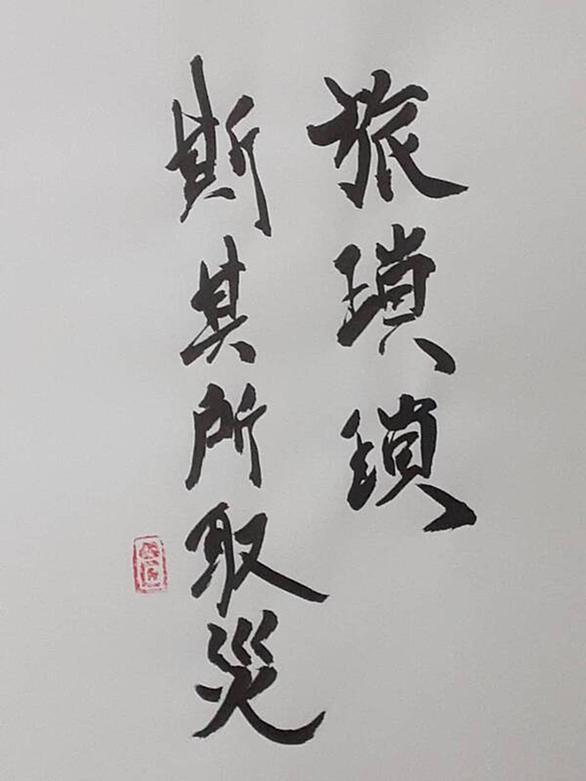 旅瑣瑣
斯其所取災